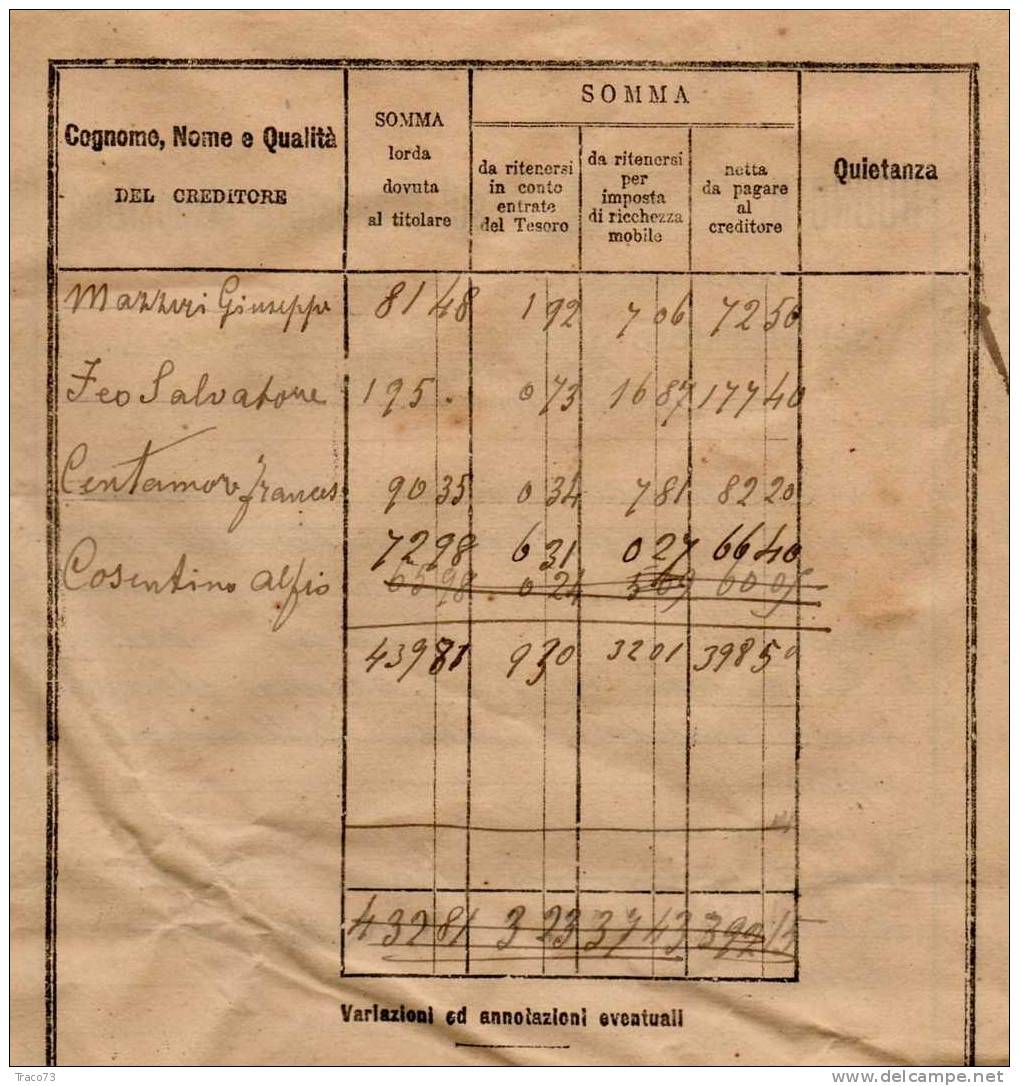 Cognome, Nome e Qualità
DEL CREDITORE
SOMMA
lorda
dovuta
al titolare
SOMMA
da ritenersi
in conto
entrate
del Tesoro
da ritenersi
per
imposta
di ricchezza
mobile
netta
da pagare
al
creditore
Quietanza
Giuseppe 81 48 1 92 7 06 72 50
Feo Salvatore 195 . 0 73 16 87 177 40
Centamore Frances 90 35 0 34 7 81 82 20
72 98 6 31 0 27 66 40
Cosentino Alfio 65 98 0 24 5 69 60 05
439 81 9 30 32 01 398 50
432 81 3 23 37 43 392 15
Variazioni ed annotazioni eventuali
Traco73
www.delcampe.net